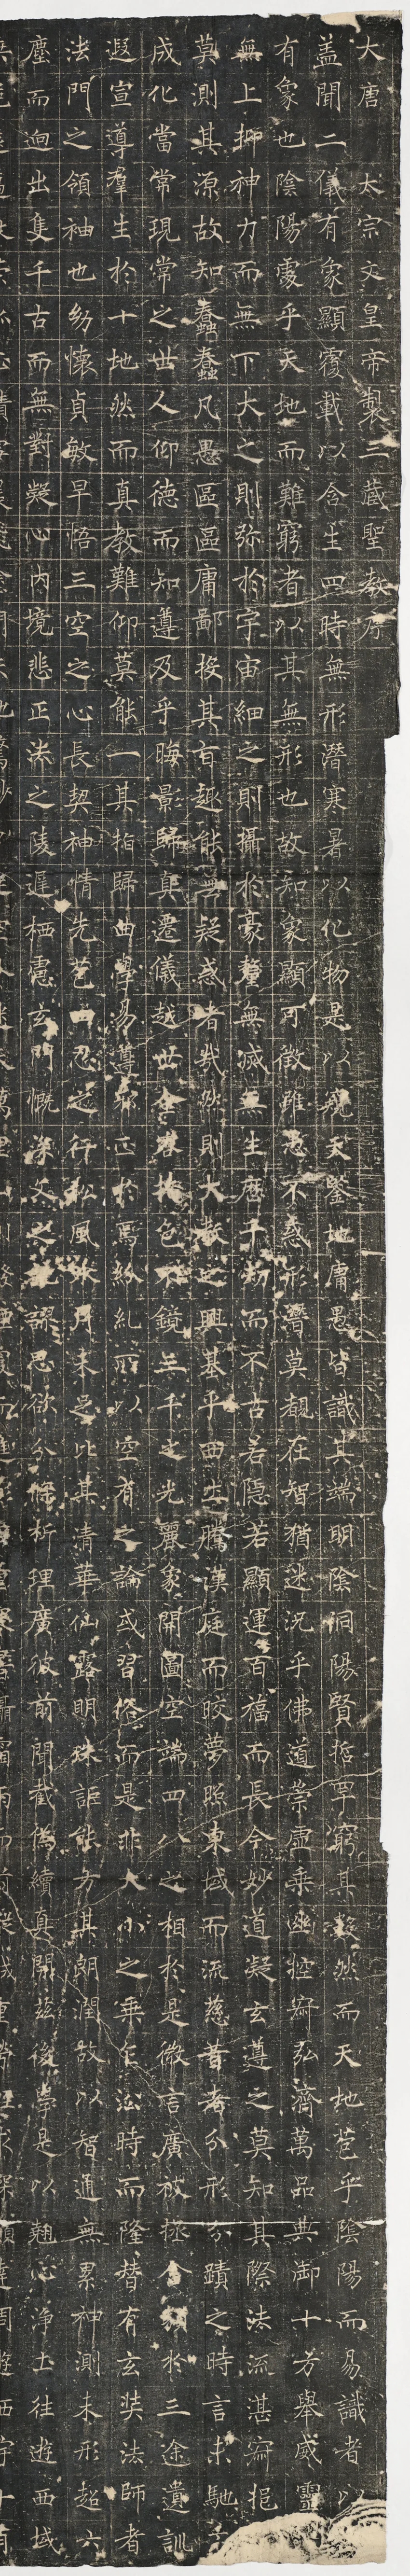 大唐 太宗文皇帝製三藏聖教序
蓋聞二儀有象顯覆載以含生四時無形潛寒暑以化物是以窺天鑒地庸愚皆識其端明陰洞陽賢哲罕窮其數然而天地苞乎陰陽而易識者以
有象也陰陽處乎天地而難窮者以其無形也故知象顯可徵雖愚不惑形潛莫覩在智猶迷況乎佛道崇虛乘幽控寂弘濟萬品典御十方舉威靈
無上抑神力而無下大之則彌於宇宙細之則攝於豪釐無滅無生歷千劫而不古若隱若顯運百福而長今妙道凝玄遵之莫知其際法流湛寂挹
莫測其源故知蠢蠢凡愚區區庸鄙投其旨趣能無疑惑者哉然則大教之興基乎西土騰漢庭而皎夢照東域而流慈昔者分形分蹟之時言未馳
成化當常現常之世人仰德而知遵及乎晦影歸真遷儀越世金容掩色不鏡三千之光麗象開圖空端四八之相於是微言廣被拯含類於三途遺訓
遐宣導羣生於十地然而真教難仰莫能一其指歸曲學易遵邪正於焉紛糺所以空有之論或習俗而是非大小之乘乍沿時而隆替有玄奘法師者
法門之領袖也幼懷貞敏早悟三空之心長契神情先苞四忍之行松風水月未足比其清華仙露明珠詎能方其朗潤故以智通無累神測未形超六
塵而迥出隻千古而無對凝心內境悲正法之陵遲栖慮玄門慨深文之訛謬思欲分條析理廣彼前聞截偽續真開茲後學是以翹心淨土往遊西域